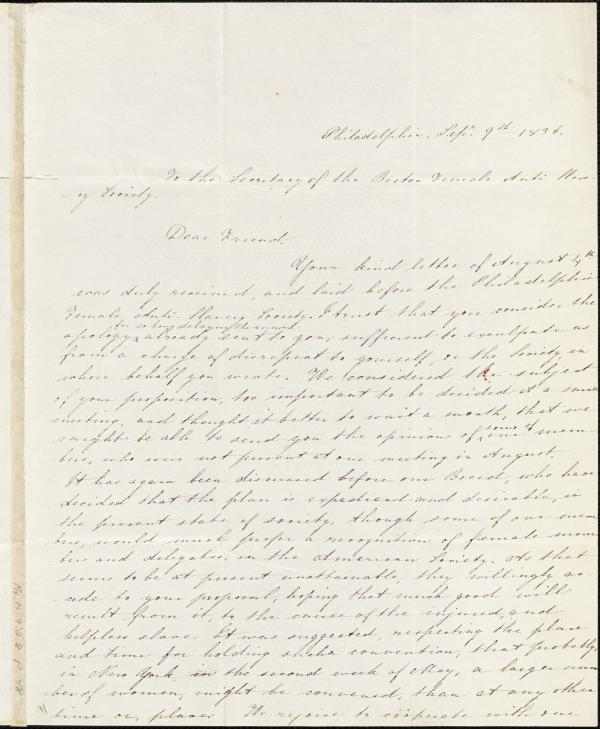 Philadelphia. Sepr. 9th 1836.
To the Secretary of the Boston Female Anti Slav-
-ery Society.
Dear Friend,
Your kind letter of August 4th
was duly received, and laid before the Philadelphia
Female Anti Slavery Society. I trust that you consider the
for so long delaying the answer
apology already sent to you, sufficient to exculpate us
from a charge of disrespect to yourself, or the Society, in
whose behalf you wrote. We considered the subject
of your proposition, too important to be decided at a small
meeting, and thought it better to wait a month, that we
might be able to send you the opinions of some of our mem-
bers, who were not present at our meeting in August.
It has again been discussed before our Board, who have
decided that the plan is expedient and desirable, in
the present state of society, though some of our mem
bers, would much prefer a recognition of female mem
bers and delegates, in the American Society. As that
seems to be at present unattainable, they willingly ac-
-cede to your proposal, hoping that much good will
result from it, to the cause of the injured, and
helpless slave. It was suggested, respecting the place
and time for holding such convention, that probably
in New York in the second week of May, a larger num
ber of women, might be convened, than at any other
time or, place. We rejoice to coöperate with our